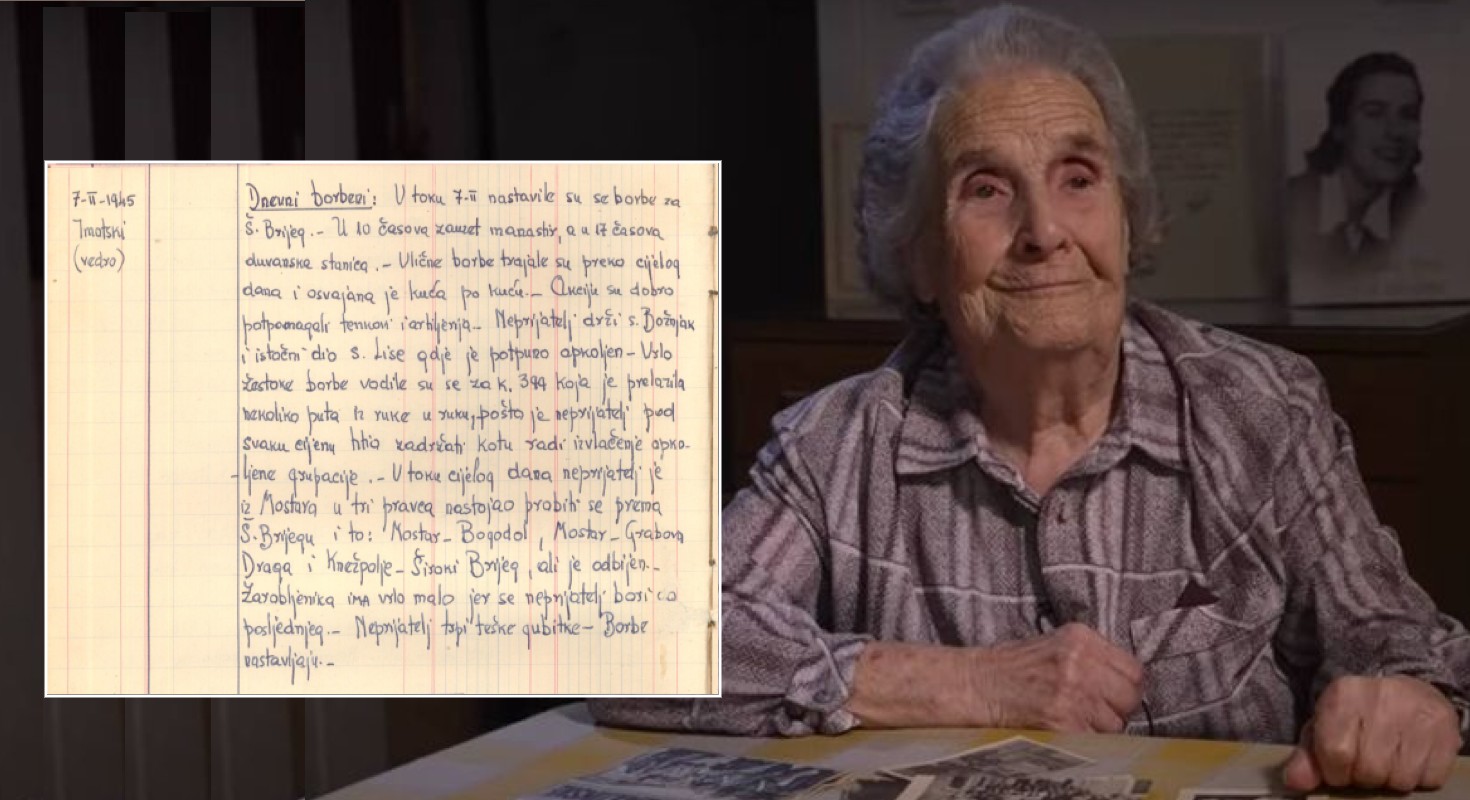 7-II-1945
Imotski
(vedro)
Dnevni borbeni: U toku 7-II nastavile su se borbe za
Š. Brijeg.- U 10 časova zauzet manastir, a u 17 časova
duvanska stanica.- Ulične borbe trajale su preko cijelog
dana i osvajana je kuća po kuću.- Akciju su dobro
potpomagali tenkovi i artiljerija- Neprijatelj drži s. Božnjak
i istočni dio s. Lise gdje je potpuno opkoljen- Vrlo
žestoke borbe vodile su se za k. 394 koja je prelazila
nekoliko puta iz ruke u ruku, pošto je neprijatelj pod
svaku cijenu htio zadržati kotu radi izvlačenje opko-
ljene grupacije.- U toku cijelog dana neprijatelj je
iz Mostara u tri pravca nastojao probiti se prema
Š. Brijegu i to: Mostar- Bogodol, Mostar- Grabova
Draga i Knežpolje- Široki Brijeg, ali je odbijen.-
Zarobljenika IMA vrlo malo jer se neprijatelj bori do
posljednjeg.- Neprijatelj trpi teške gubitke- Borbe
nastavljaju.-